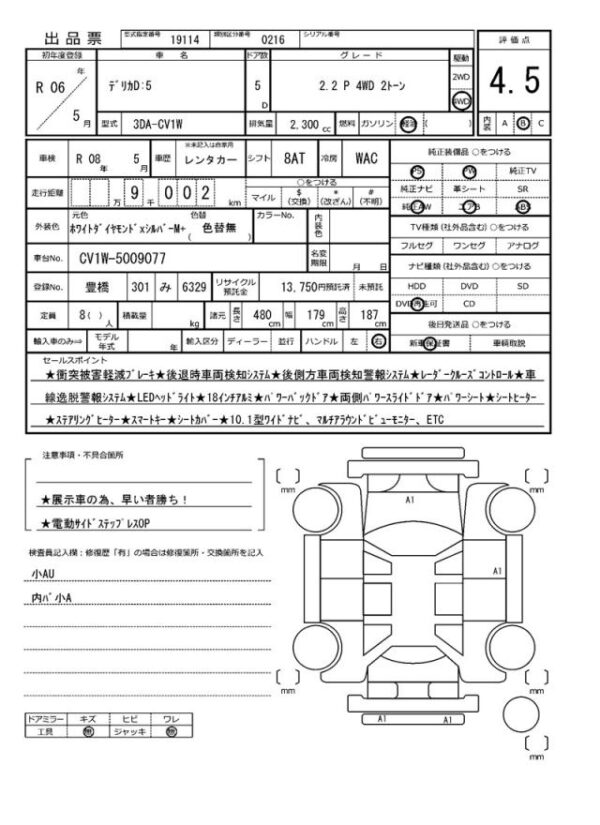 出品票 型式指定番号 19114 類別区分番号 0216 シリアル番号
評価点
4.5
初年度登録 車名 ドア数 グレード 駆動
R 06 年 5 月 デリカD:5 5 D 2.2 P 4WD 2トーン 2WD 4WD
型式 3DA-CV1W 排気量 2,300 cc 燃料 ガソリン 軽油 ( )
内装 A B C
車検 R 08 年 5 月 車歴 ※未記入は自家用 レンタカー シフト 8AT 冷房 WAC
走行距離 万 9 千 0 0 2 km
○をつける
マイル $ (交換) * (改ざん) # (不明)
外装色 元色 ホワイトダイヤモンドxシルバーM+ 色替 ( 色替無 ) カラーNo. 内装色
車台No. CV1W-5009077 名変期限 月 日
登録No. 豊橋 301 み 6329 リサイクル預託金 13,750円預託済 未預託
定員 8( ) 人 積載量 kg 諸元 長さ 480 cm 幅 179 cm 高さ 187 cm
輸入車のみ⇒ モデル年式 年 輸入区分 ディーラー 並行 ハンドル 左 右
純正装備品 ○をつける
PS PW 純正TV
純正ナビ 革シート SR
純正AW エアB ABS
TV種類(社外品含む)○をつける
フルセグ ワンセグ アナログ
ナビ種類(社外品含む)○をつける
HDD DVD SD
DVD再生可 CD
後日発送品 ○をつける
新車保証書 車輌取説
セールスポイント
★衝突被害軽減ブレーキ★後退時車両検知システム★後側方車両検知警報システム★レーダークルーズコントロール★車
線逸脱警報システム★LEDヘッドライト★18インチアルミ★パワーバックドア★両側パワースライドドア★パワーシート★シートヒーター
★ステアリングヒーター★スマートキー★シートカバー★10.1型ワイドナビ、マルチアラウンドビューモニター、ETC
注意事項・不具合箇所
★展示車の為、早い者勝ち!
★電動サイドステップレスOP
検査員記入欄:修復歴「有」の場合は修復箇所・交換箇所を記入
小AU
内バ小A
ドアミラー キズ ヒビ ワレ
工具 無 ジャッキ 無
mm
mm
A1
A1
mm
mm
A1 A1
mm